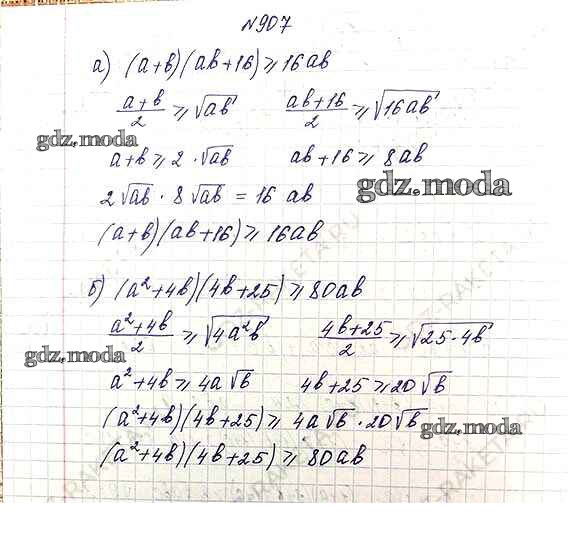 №907
а) (a+b)(ab+16)⩾16ab
(a+b)/2 ⩾ √ab (ab+16)/2 ⩾ √16ab
gdz.moda
a+b⩾2·√ab ab+16⩾8ab
gdz.moda
2√ab·8√ab = 16 ab
(a+b)(ab+16)⩾16ab
б) (a²+4b)(4b+25)⩾80ab
(a²+4b)/2 ⩾ √4a²b (4b+25)/2 ⩾ √25·4b
gdz.moda
a²+4b⩾4a√b 4b+25⩾20√b
(a²+4b)(4b+25)⩾4a√b·20√b
gdz.moda
(a²+4b)(4b+25)⩾80ab